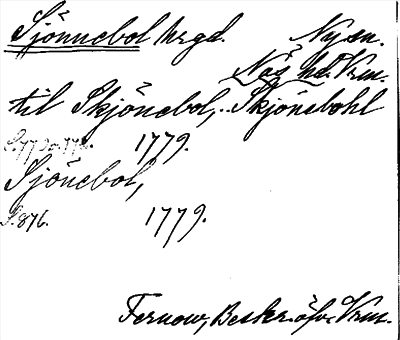 Sjönnebol hrgd. Nysn.
Näs hd. Vrm.
til Skjönebol, Skjönebohl
1779.
Sjönebol,
S. 876. 1779.
Fernow, Beskr. öfv. Vrm.